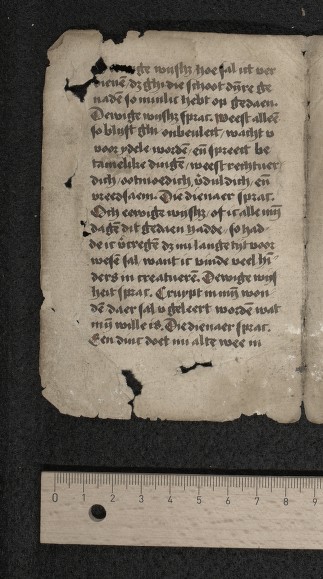 wijsh; hoe sal ic ver
dienē dz ghi die schoot dure ge
nadē so milic hebt op gedaen.
Dewige wijsh; sprac. weest alleē
so blijft ghi onbeulect, wacht v
voor ydele wordē, eñ spreect be
tamelike dingē, weest rechtuer
dich, ootmoedich, v̄duldich, eñ
vreedsaem. Die dienaer sprac.
Och eewige wijsh; of ic alle mij̄
dagē dit gedaen hadde, so had
de ic v̄cregē dz mi lange tijt voor
wesē sal want ic vinde veel hī
ders in creaturē. Dewige wijs
heit sprac. Cruypt in mij̄ won
dē daer sal v geleert wordē wat
mij̄ wille is. Die dienaer sprac.
Een dinc doet mi alte wee in
0 1 2 3 4 5 6 7 8 9